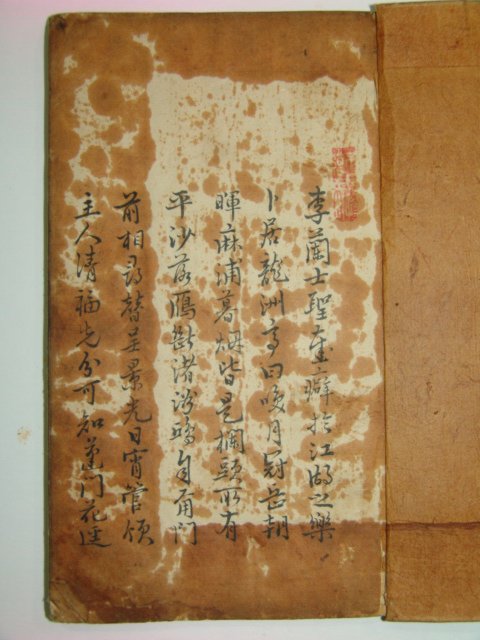 李蘭士聖產癖於江湖之樂
卜居龍洲亭曰喚月冠岳朝
暉麻浦暮烟皆是欄頭所有
平沙落鴈断渚浴鷗自甬門
前相尋替呈景光日宵管領
主人清福先分可知第門花逕